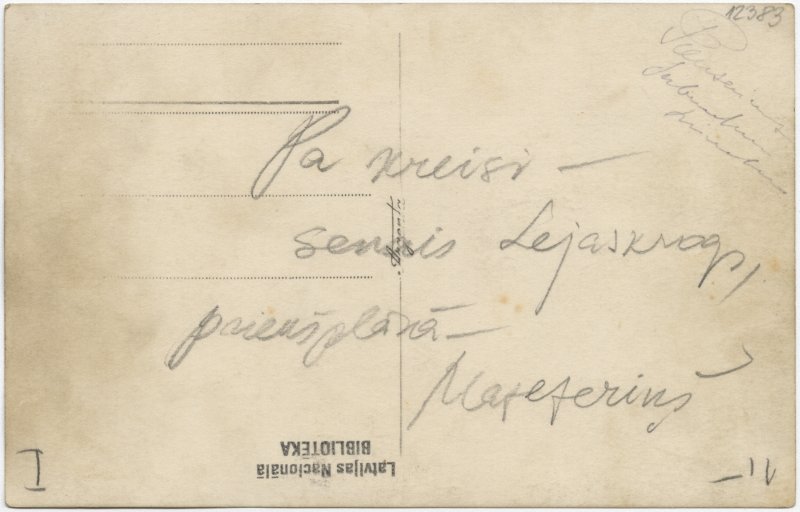 12383
Pa kreisi —
senais Lejaskrogs,
priekšplānā —
Mazezeriņš
I
Latvijas Nacionālā
BIBLIOTĒKA